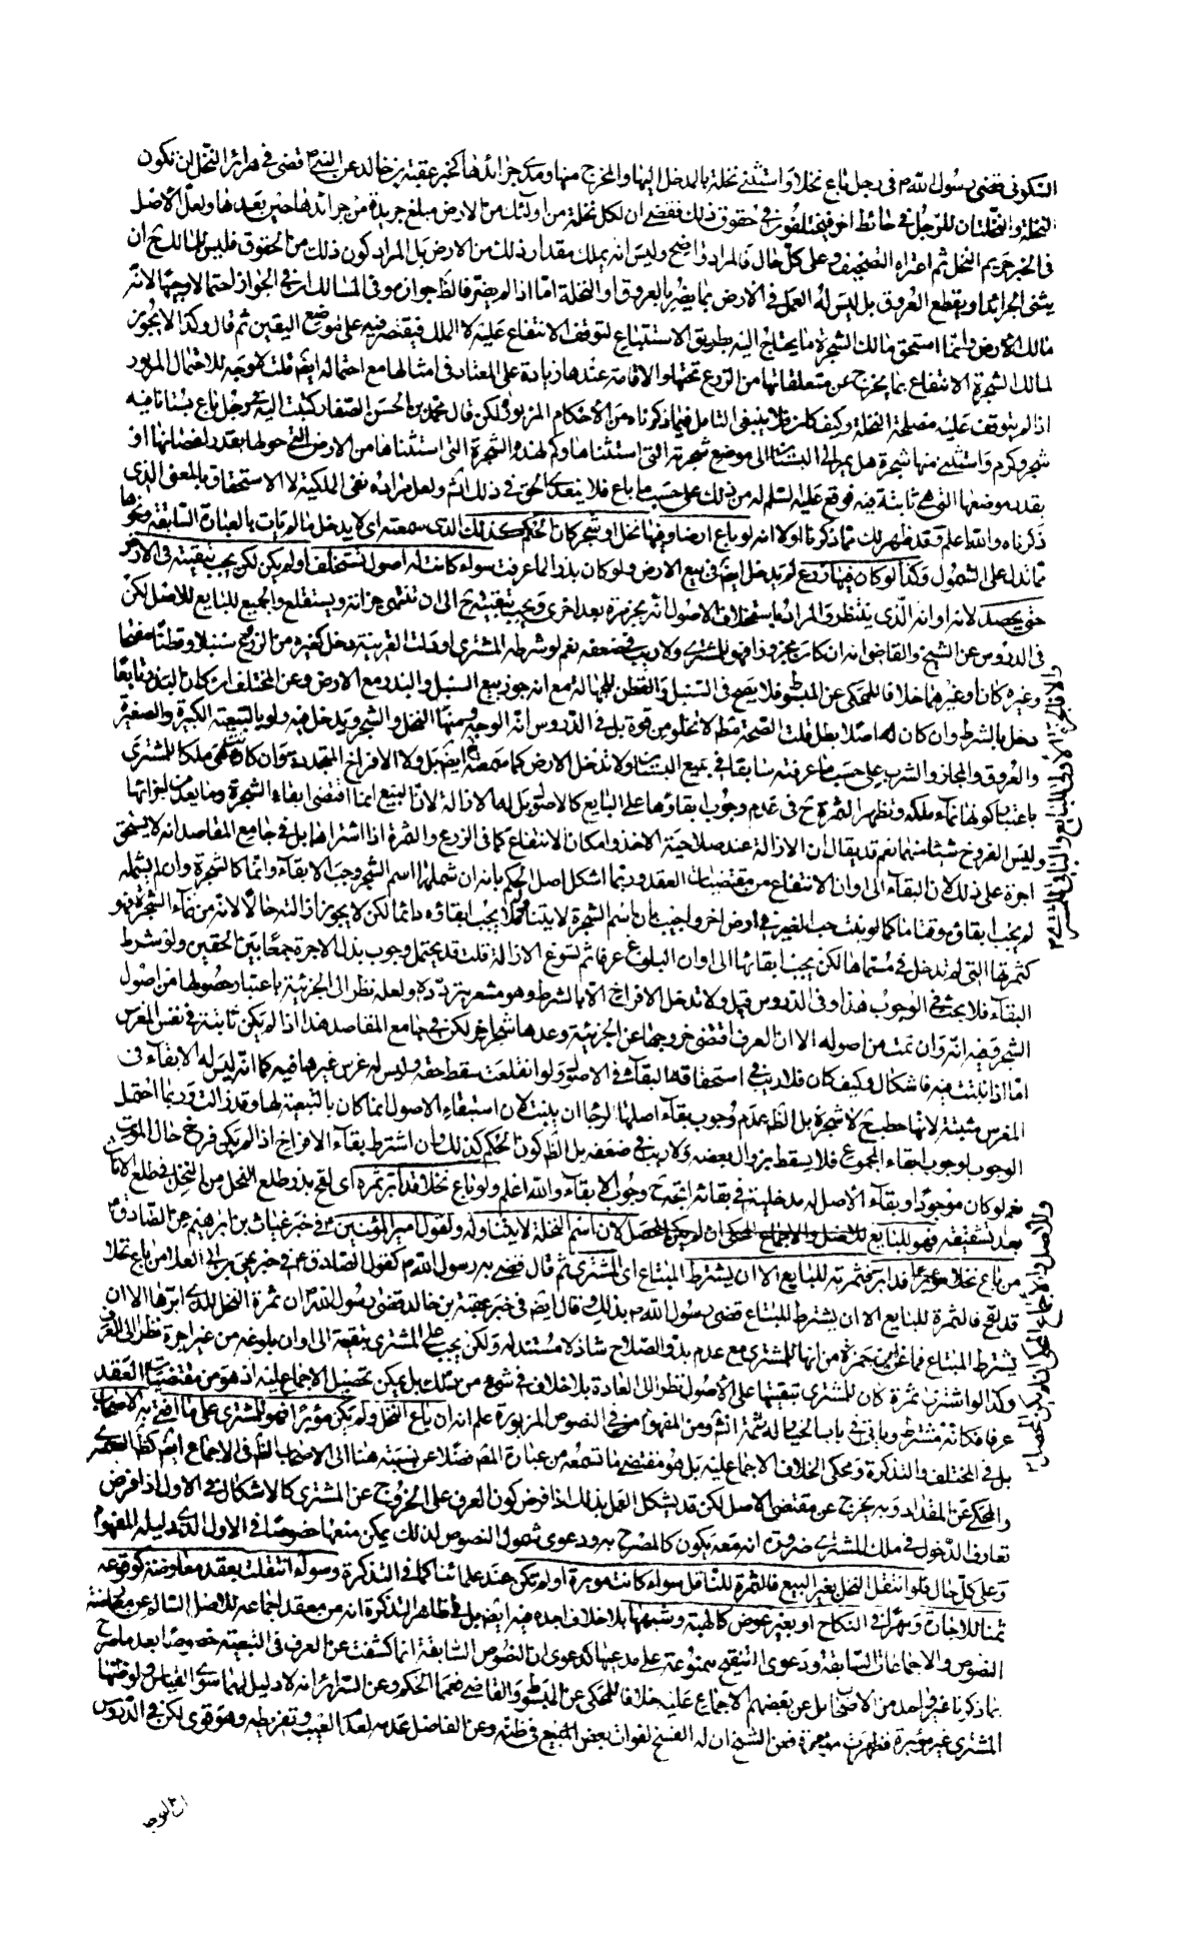 السكونى قضى رسول الله ص فى رجل باع نخلا و استثنى نخلة بالمدخل اليها والمخرج منها و مدى جرائدها كخبر عقبة بن خالد عن النبى ص قضى فى هرائر النخل ان تكون
النخلة و النخلتان للرجل فى حائط اخر فيختلفون فى حقوق ذلك فقضى ان لكل نخلة من اولئك من الارض مبلغ جريدة من جرائدها حين بعدها ولعل الاصل
فى الخبر حريم النخل ثم اعتراه التصحيف وعلى كل حال فالمراد واضح وليس انه يملك مقدار ذلك من الارض بل المراد كون ذلك من الحقوق فليس للمالك ح ان
يثنى الجرائد او يقطع العروق بل ليس له العمل فى الارض بما يضر بالعروق او النخلة اما اذا لم يضر فالظ جوازه و فى المسالك ارجح الجواز احتمالا وجهها لانه
مالك الارض و انما استحق مالك الشجرة ما يحتاج اليه بطريق الاستتباع لتوقف الانتفاع عليه لا الملك فيقتصر فيه على موضع اليقين ثم قال وكذا لا يجوز
لمالك الشجرة الانتفاع بما يخرج عن متعلقاتها من الزرع تحتها و الاقامة عندها زيادة على المعتاد فى امثالها مع احتماله ايضا قلت لا وجه للاحتمال المزبور
اذا لم يتوقف عليه مصلحة النخلة وكيف كان فلا ينبغى التامل فيما ذكرناه من الاحكام المزبورة لكن قال محمد بن الحسن الصفار كتبت اليه ع فى رجل باع بستانا فيه
شجر وكرم و استثنى منها شجرة هل له ممر الى البستان الى موضع شجرته التى استثناها وكم لهذه الشجرة التى استثناها من الارض التى حولها بقدر اغصانها او
بقدر موضعها التى هى ثابتة فيه فوقع عليه السلم له من ذلك على حسب ما باع فلا يتعدى الحق فى ذلك انش ولعل مراده نفى الملكية لا الاستحقاق بالمعنى الذى
ذكرناه والله اعلم وقد ظهر لك مما ذكرنا اولا انه لو باع ارضا و فيها نخل او شجر كان الحكم كذلك الذى سمعته اى لا يدخل ما لم يات بالعبارة السابقة و نحوها
مما تدل على الشمول وكذا لو كان فيها زرع لم يدخل ايضا فى بيع الارض ولو كان بذرا لما عرفت سواء كانت له اصول تستخلف او لم يكن لكن يجب تبقيته فى الارض
حتى يحصد لانه اوانه الذى ينتظر و المراد باستخلاف الاصول انه يجز مرة بعد اخرى و يجب تبقيته ح الى ان تنتهى جزاته و يستقلع و الجميع للبايع للاصل لكن
فى الدروس عن الشيخ و القاضى انه ان كان مجزوزا فهو للمشترى ولا ريب فى ضعفه نعم لو شرطه المشترى او دلت القرينة دخل كغيره من الزرع سنبلا و قطنا منعقدا
وغيره كان او غيرهما خلافا للمحكى عن المبسوط فلا يصح فى السنبل و القطن للجهالة مع انه جوز بيع السنبل و البذر مع الارض و عن المختلف ان كان البذر تابعا
دخل بالشرط و ان كان اصلا بطل قلت الصحة مط لا تخلو من قوة بل فى الدروس انه الوجه و منها النخل و الشجر و يدخل فيه ولو بالتبعية الكبيرة و الصغيرة
والعروق و المجاز و الشرب على حسب ما عرفته سابقا فى بيع البستان ولا تدخل الارض كما سمعته ايضا بل ولا الافراخ المتجددة و ان كان هى ملكا للمشترى
باعتبار كونها نماء ملكه و تظهر الثمرة ح فى عدم وجوب ابقاؤها على البايع كالاصول بل له الازالة لان البيع انما اقتضى ابقاء الشجرة وما يعد من لوازمها
وليس الفروخ شيئا منها نعم قد يقال ان الازالة عند صلاحية الاخذ و امكان الانتفاع كما فى الزرع و الثمرة اذا اشتراها بل فى جامع المقاصد انه لا يستحق
اجرة على ذلك لان البقاء الى اوان الانتفاع من مقتضيات العقد و ربما اشكل اصل الحكم بانه ان شملها اسم الشجر وجب الابقاء دائما كالشجرة و ان لم يشمله
لم يجب ابقاؤه وقتا ما كما لو نبت حب الغير فى ارض اخر و اجيب بان اسم الشجرة لا يتناوله فلا يجب ابقاؤه دائما لكن لا يجوز ازالته حالا لانه من نماء الشجرة فهو
كثمرتها التى لم تدخل فى مسماها لكن يجب ابقائها الى اوان البلوغ عرفا ثم تسوغ الازالة قلت قد يحتمل وجوب بذل الاجرة جمعا بين الحقين ولو شرط
البقاء فلا بحث فى الوجوب هذا و فى الدروس قيل ولا تدخل الافراخ الا بالشرط وهو مشعر بتردده و لعله نظر الى الجزئية باعتبار حصولها من اصول
الشجر و فيه انه و ان نمت من اصوله الا ان العرف اقتضى خروجها عن الجزئية وعدها شجرا اخر لكن فى جامع المقاصد هذا اذا لم يكن ثابتة فى نفس المغرس
اما اذا نبتت فيه فاشكال و كيف كان فلا ريب فى استحقاقه البقاء فى الاصول ولو انقلعت سقط حقه وليس له غرس غيرها فيه كما انه ليس له الابقاء فى
المغرس ميتة لانها حطب لا شجرة بل الظ عدم وجوب بقاء اصلها لرجا ان ينبت لان استبقاء الاصول انما كان بالتبعية لها وقد زالت و ربما احتمل
الوجوب لوجوب ابقاء المجموع فلا يسقط بزوال بعضه ولا ريب فى ضعفه بل الظ كون الحكم كذلك و ان اشترط بقاء الافراخ اذا لم يكن فرخ حال الموت
نعم لو كان موجودا و بقاء الاصل له مدخلية فى بقائه اتجه ح وجوب الابقاء والله اعلم ولو باع نخلا قد ابر ثمره اى لقح بذر طلع الفحل من النخل فى طلع الاناث
بعد تشقيقه فهو للبايع للاصل والاجماع المحكى ان لم يكن المحصل لان اسم النخلة لا يتناوله و لقول امير المؤمنين ع فى خبر غياث بن ابراهيم عن الصادق ع
من باع نخلا قد ابر فثمرته للبايع الا ان يشترط المبتاع اى المشترى ثم قال قضى به رسول الله ص كقول الصادق ع فى خبر يحيى بن ابى العلا من باع نخلا
قد لقح فالثمرة للبايع الا ان يشترط المبتاع قضى رسول الله ص بذلك و قال ايضا فى خبر عقبة بن خالد قضى رسول الله ص ان ثمرة النخل للذى ابرها الا ان
يشترط المبتاع فما عن ابن حمزة من انها للمشترى مع عدم بدو الصلاح شاذ لا مستند له ولكن يجب على المشترى تبقيته الى اوان بلوغه من غير اجرة نظرا الى العرف
وكذا لو اشترى ثمرة كان للمشترى تبقيتها على الاصول نظرا الى العادة بلا خلاف فى شىء من ذلك بل يمكن تحصيل الاجماع عليه اذ هو من مقتضيات العقد
عرفا فكانه مشترط و ياتى فى باب الخيار له تتمة انش و من المفهوم فى النصوص المزبورة علم انه ان باع النخل ولم يكن مؤبرا فهو للمشترى على ما افتى به الاصحاب
بل فى المختلف و التذكرة و محكى الخلاف الاجماع عليه بل هو مقتضى ما تسمعه من عبارة المصنف فضلا عن نسبته هنا الى الاصحاب
والمحكى عن المقداد و به يخرج عن مقتضى الاصل لكن قد يشكل العمل بذلك اذا فرض كون العرف على الخروج عن المشترى كالاشكال فى الاول اذا فرض
تعارف الدخول فى ملك المشترى ضرورة انه معه يكون كالمصرح به و دعوى شمول النصوص لذلك يمكن منعها خصوصا فى الاول الذى دليله المفهوم
وعلى كل حال فلو انتقل النخل بغير البيع فالثمرة للناقل سواء كانت مؤبرة او لم تكن عند علمائنا كما فى التذكرة وسواء انتقلت بعقد معاوضة كوقوعه
ثمنا للاجارة و مهرا فى النكاح او بغير عوض كالهبة و شبهها بلا خلاف اجده فيه ايضا بل فى ظاهر التذكرة انه من معقد اجماعه للاصل السالم عن معارضة
النصوص و الاجماعات السابقة و دعوى التنقيح ممنوعة على مدعيها كدعوى ان النصوص السابقة انما كشفت عن العرف فى التبعية خصوصا بعد ما صرح
بما ذكرنا غير واحد من الاصحاب بل عن بعضهم الاجماع عليه خلافا للمحكى عن المبسوط و القاضى فعمما الحكم و عن السرائر انه لا دليل لهما سوى القياس ولو ظنها
المشترى غير مؤبرة فظهرت مؤبرة فعن الشيخ ان له الفسخ لفوات بعض المبيع فى ظنه و عن الفاضل عدمه لعدم العيب و تفريطه وهو قوى لكن فى الدروس
ان الوجه